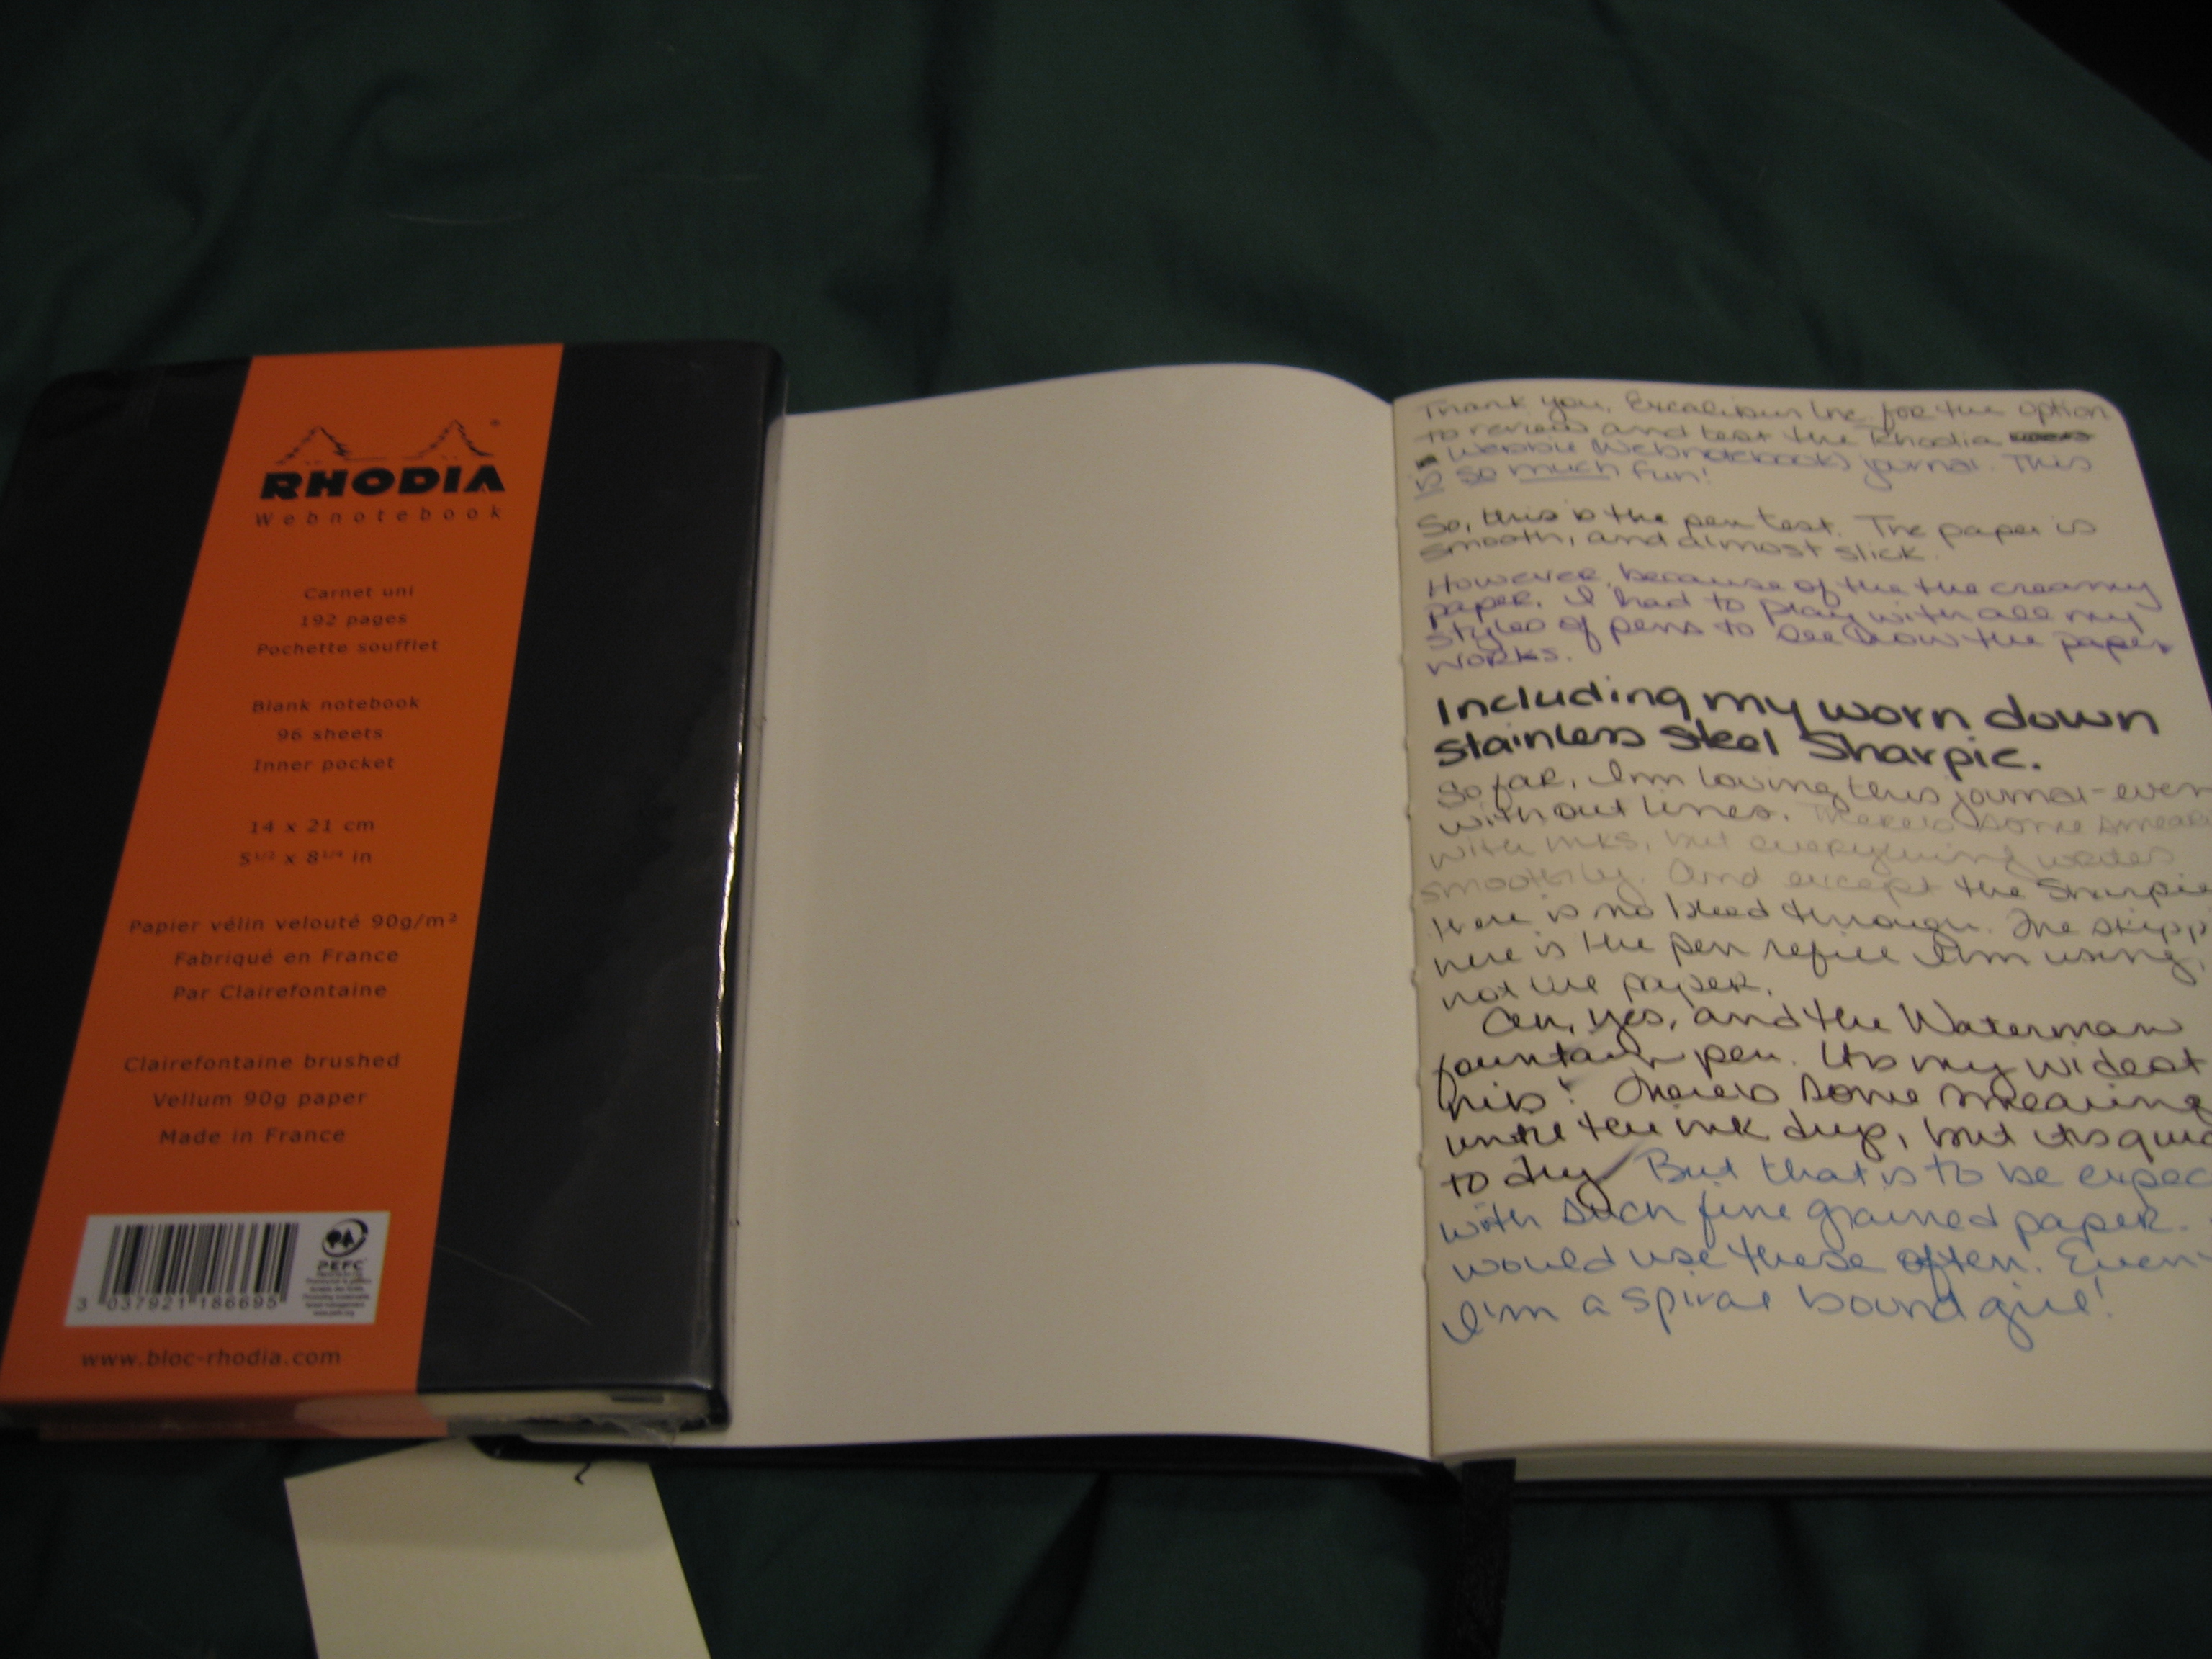 RHODIA
Webnotebook
Carnet uni
192 pages
Pochette soufflet
Blank notebook
96 sheets
Inner pocket
14 x 21 cm
5 1/2 x 8 1/4 in
Papier vélin velouté 90g/m²
Fabriqué en France
Par Clairefontaine
Clairefontaine brushed
Vellum 90g paper
Made in France
3 037921 186695
PEFC
www.bloc-rhodia.com
Thank you, Excalibur Inc for the option
to review and test the Rhodia
Webbie (Webnotebook) journal. This
is so much fun!
So, this is the pen test. The paper is
smooth, and almost slick.
However, because of the the creamy
paper, I had to play with all my
styles of pens to see how the paper
works.
Including my worn down
stainless steel Sharpie.
So far, I'm loving this journal-even
without lines. There's some
with inks, but everything writes
smoothly. And except the Sharpie
there is no bleed through. The
here is the pen refill I'm using,
not the paper.
Oh, yes, and the Waterman
fountain pen. It's my widest
nib! There's some smearing
until the ink dries, but it's
to dry. But that is to be
with such fine grained paper.
would use these often. Even
I'm a spiral bound girl!